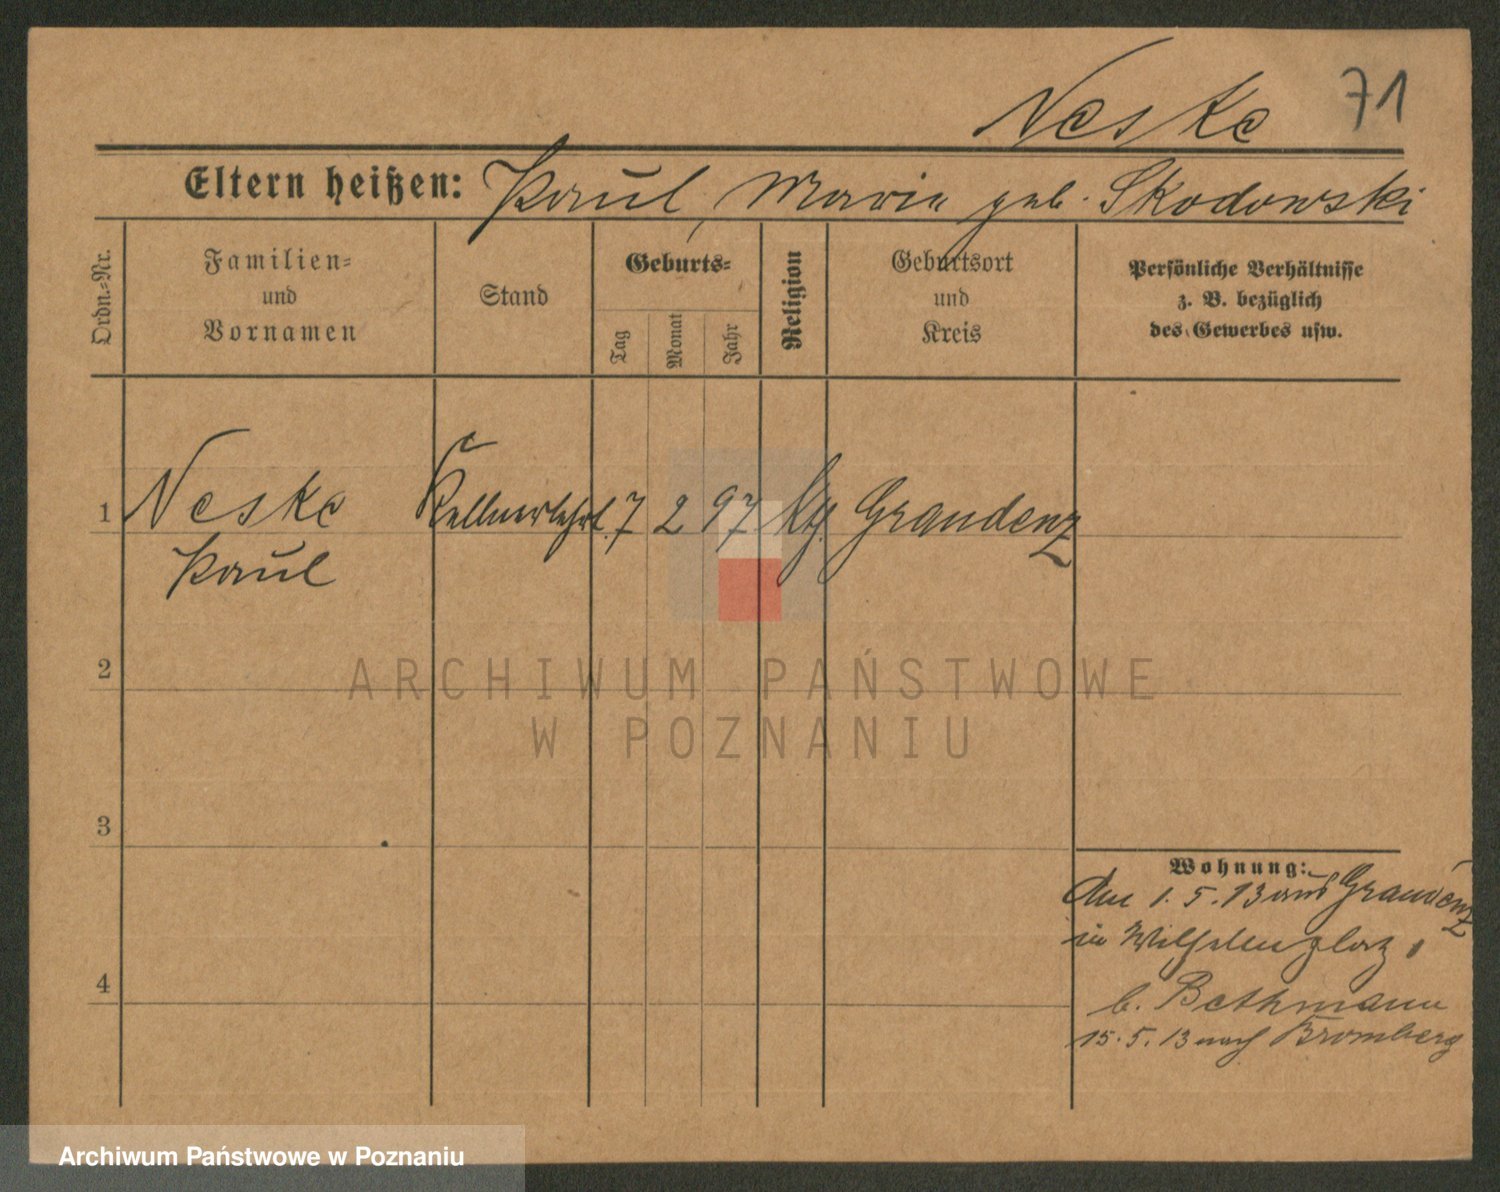 Neske 71
Eltern heißen: Paul, Marie geb. Skodowski
Ordn.-Nr.
Familien-
und
Vornamen
Stand
Geburts-
Tag
Monat
Jahr
Religion
Geburtsort
und
Kreis
Persönliche Verhältnisse
z. B. bezüglich
des Gewerbes usw.
1 Neske Kellnerlehrl. 7 2 97 Graudenz
Paul
2
ARCHIWUM PAŃSTWOWE
W POZNANIU
3
4
Wohnung:
Am 1.5.13 aus Graudenz
in Wilhelmplatz 1
b. Bethmann
15.5.13 nach Bromberg
Archiwum Państwowe w Poznaniu